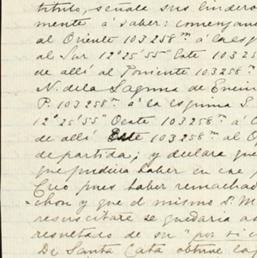 titulo, señale sus lindero
mente á saber: comenzan
al Oriente 103258 m á la es
al Sur 12°25'55" Este 10325
de allí al Poniente 103258 m
N. de la Laguna de Encin
P. 103258 m á la esquina S.
12°25'55" Oeste 103258 m á O
de allí Este 103258 m al O
de partida; y declara que
que pudiera haber en ese p
Creo pues haber remachad
chon y que el mismo S. M
resuscitare se quedaria as
resultado de su "por si c
De Santa Cata obtuve cop